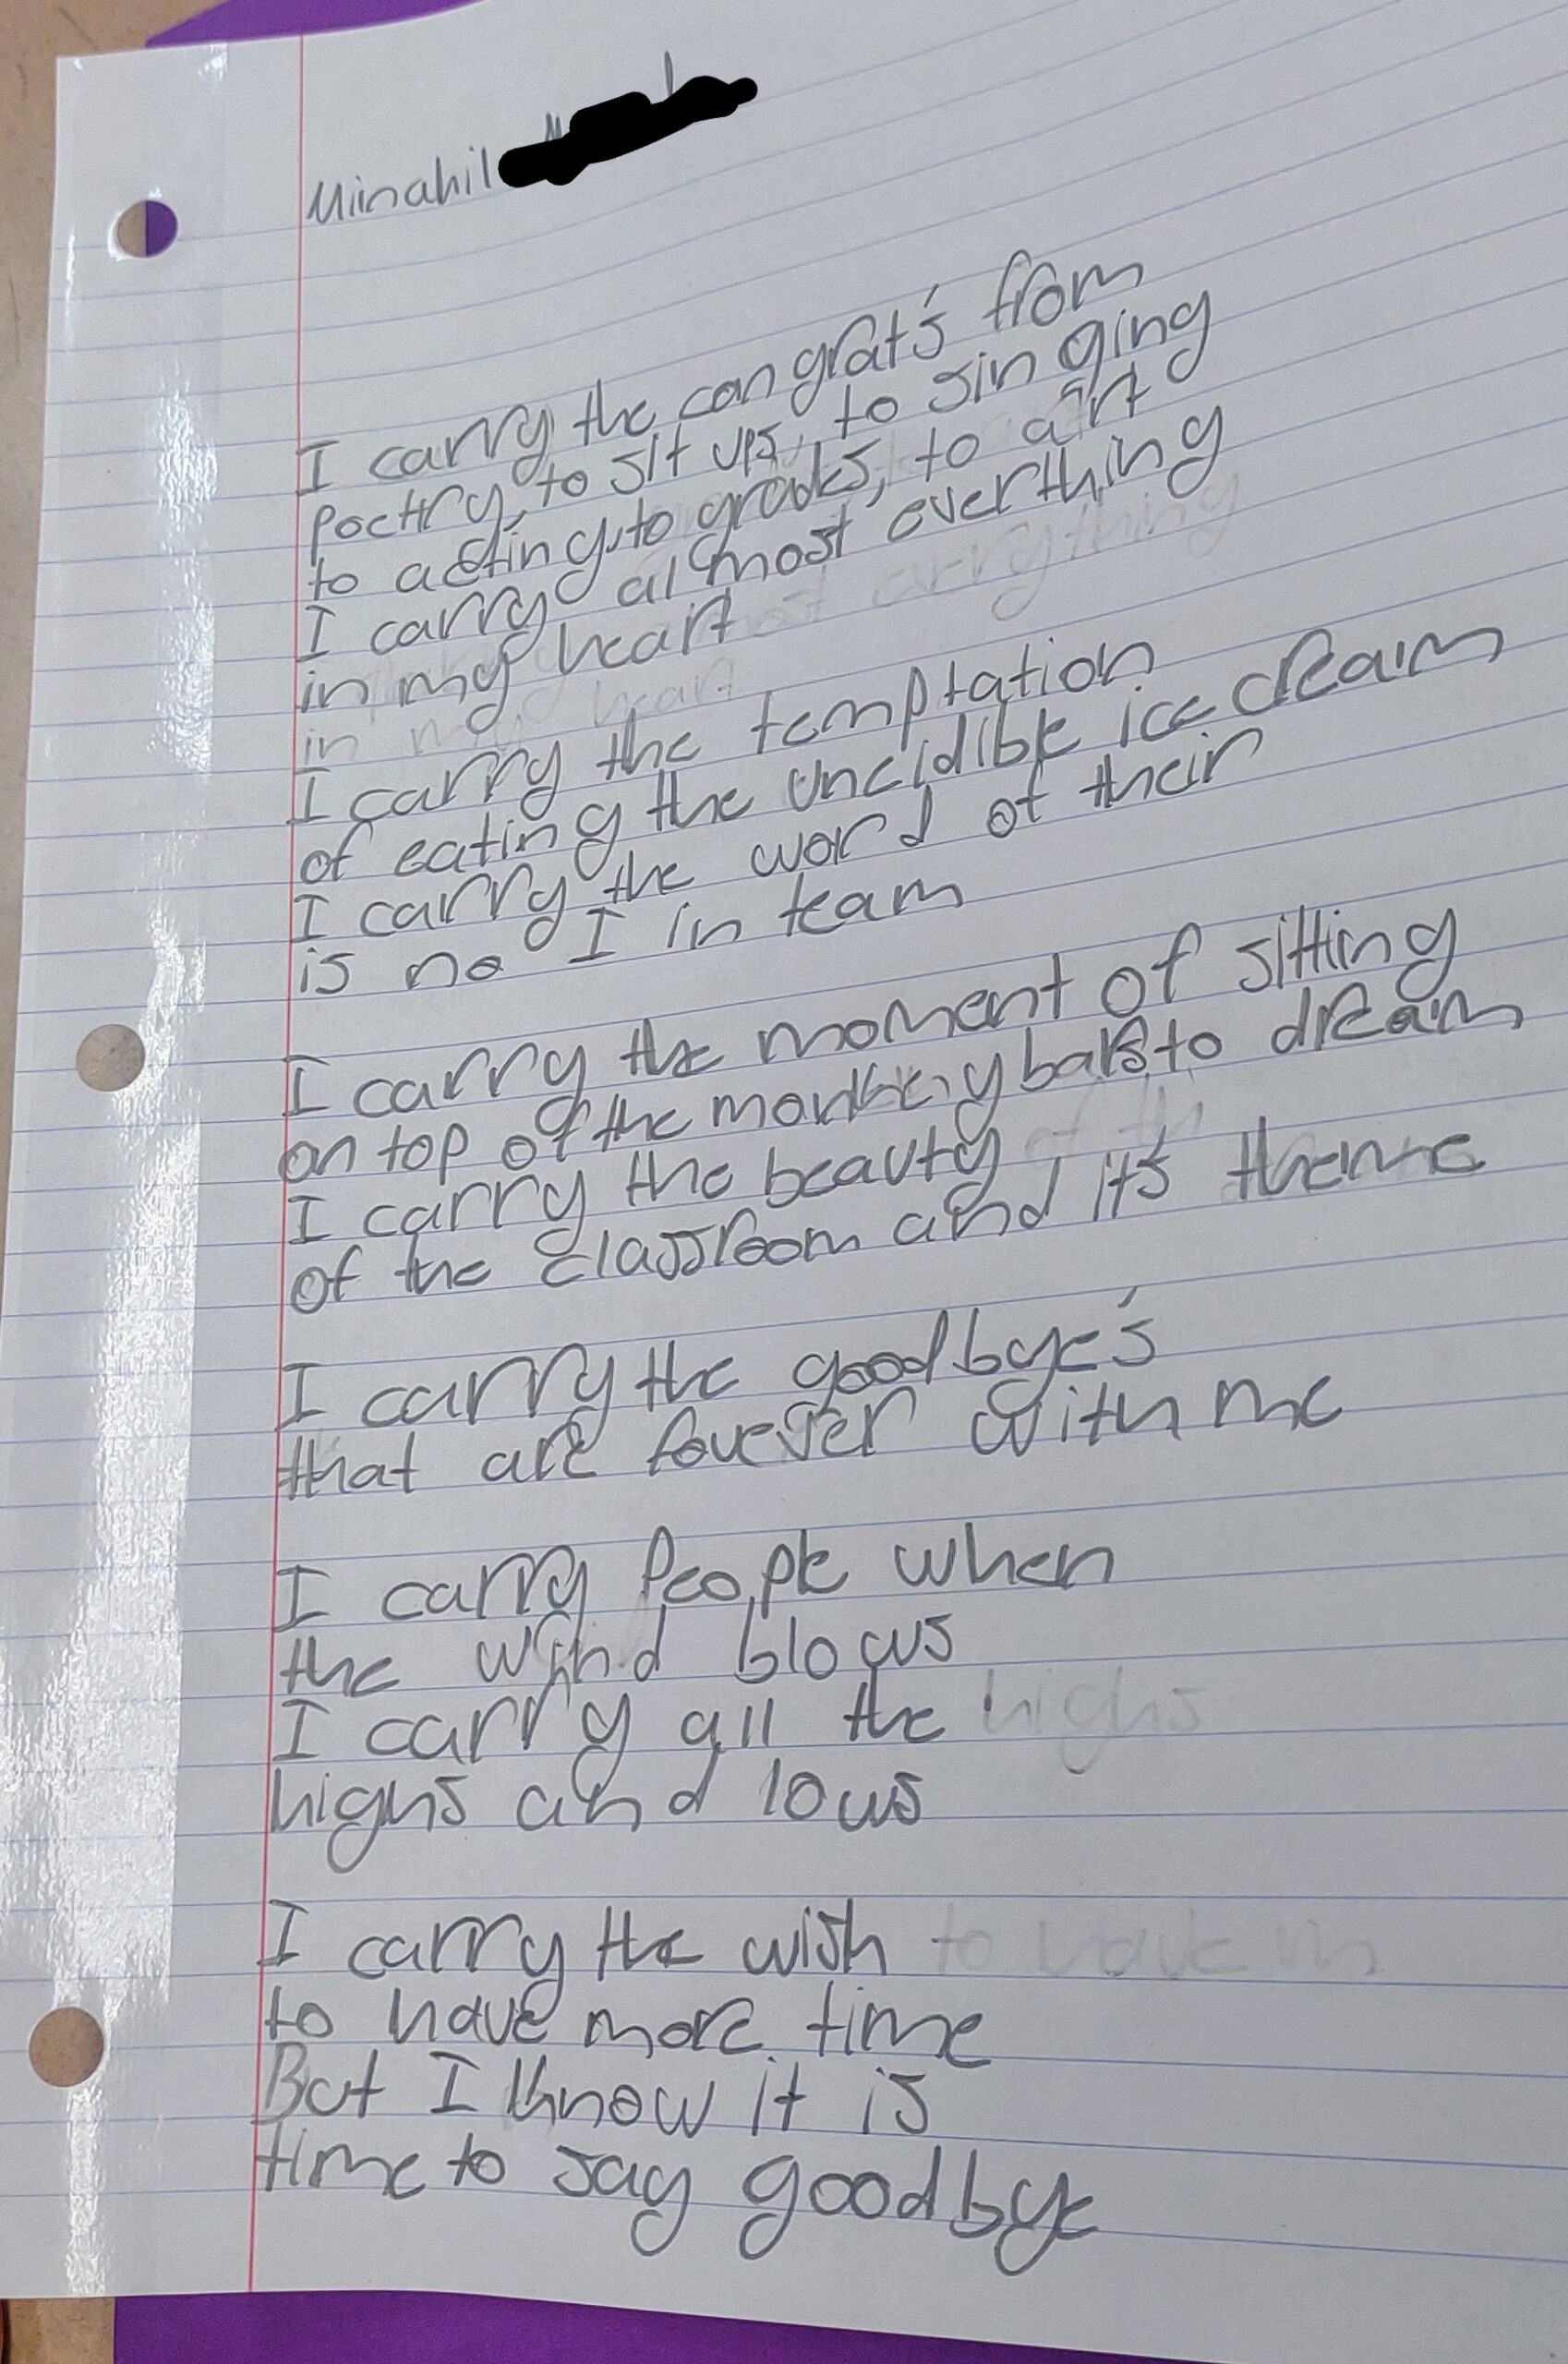 Minahil
I carry the congrat's from
poetry, to sit ups, to singing
to acting, to grades, to art
I carry almost everthing
in my heart
I carry the temptation
of eating the uncidible ice cream
I carry the word of their
is no I in team
I carry the moment of sitting
on top of the monkey bars to dream
I carry the beauty
of the classroom and it's theme
I carry the goodbye's
that are forever with me
I carry People when
the wind blows
I carry all the
highs and lows
I carry the wish
to have more time
But I know it is
time to say goodbye